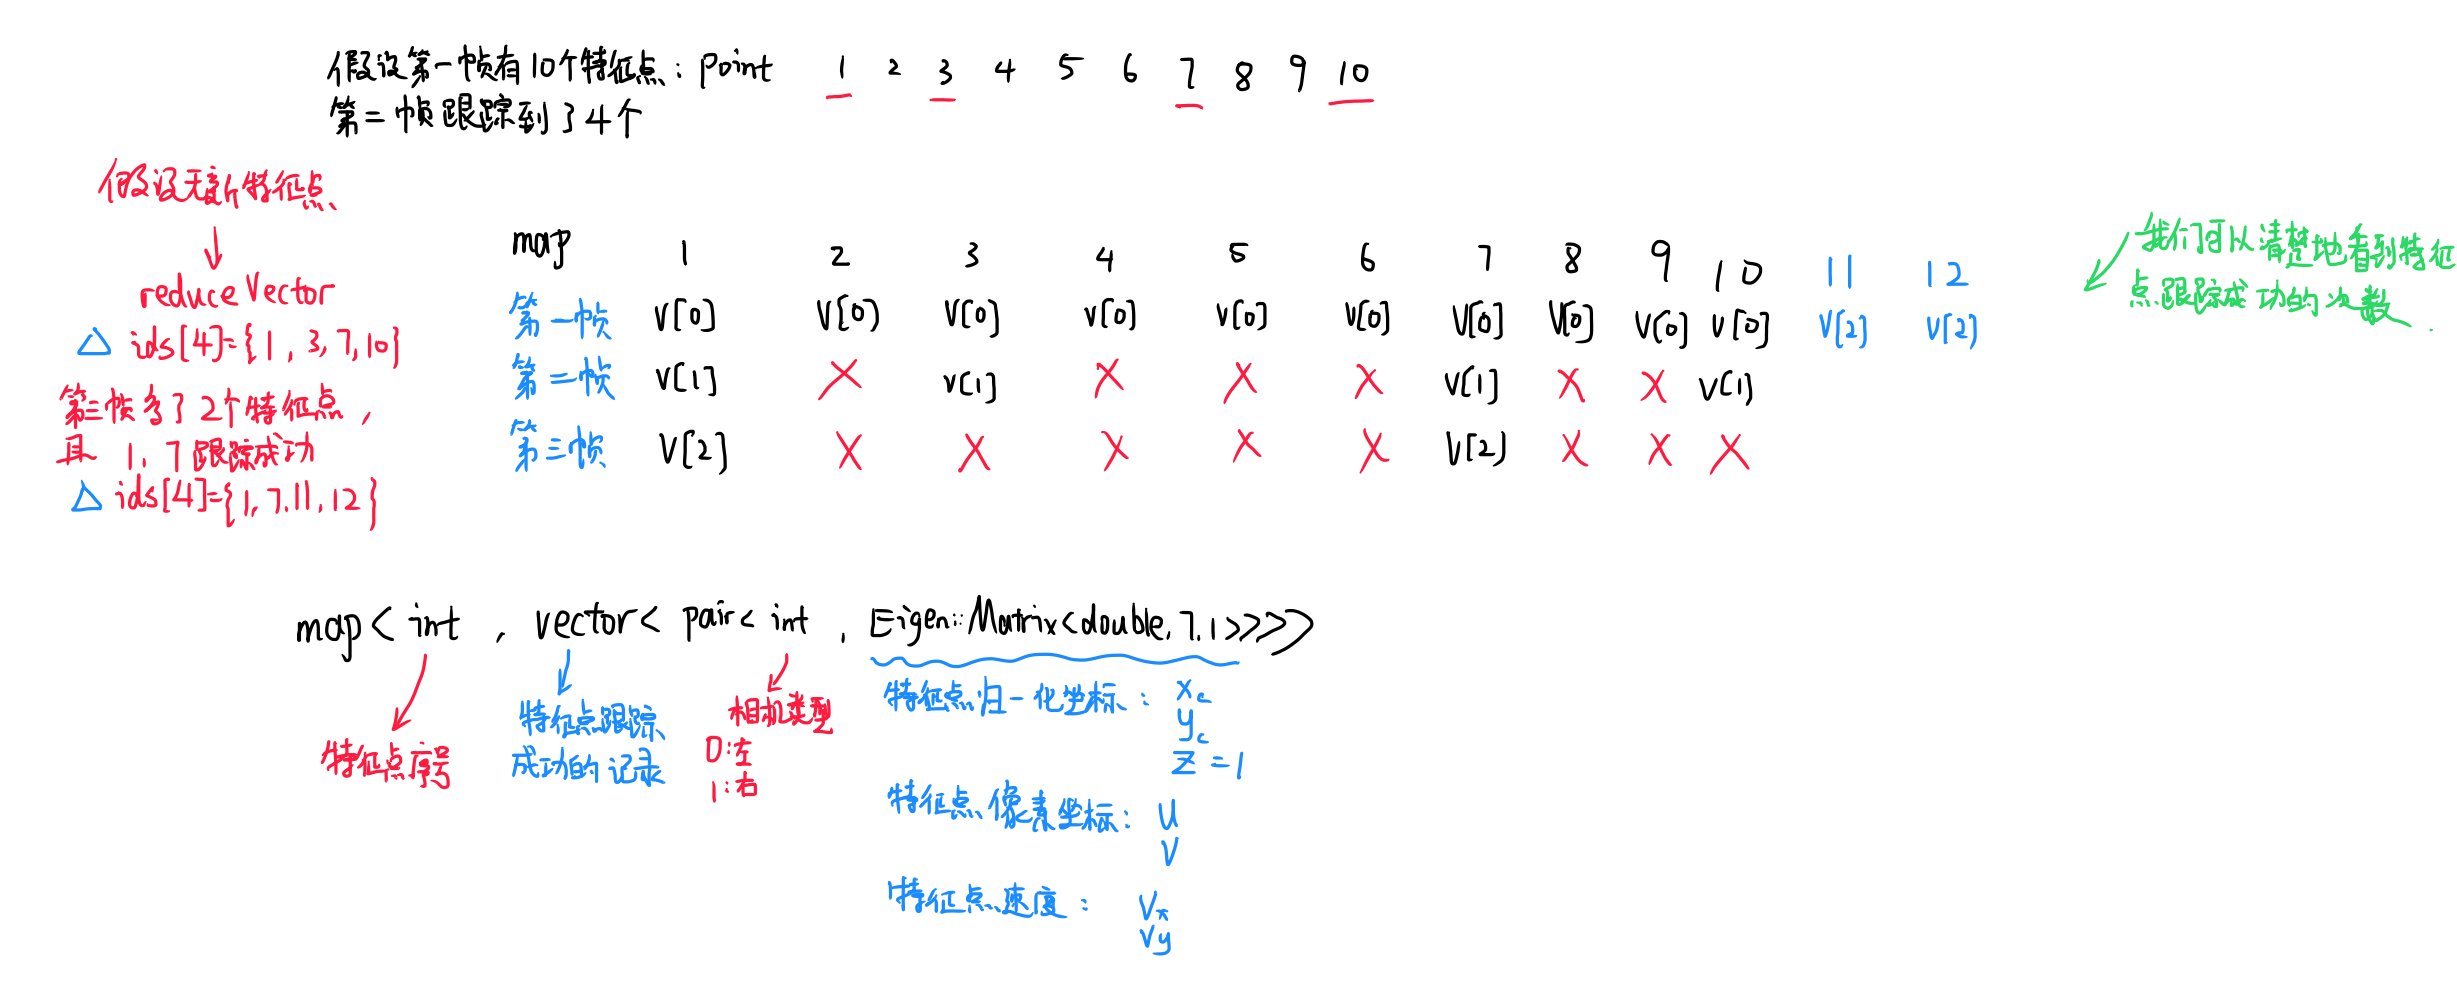 假设第一帧有10个特征点：point 1 2 3 4 5 6 7 8 9 10
第二帧跟踪到了4个
假设无新特征点
reduceVector
△ ids[4]={1, 3, 7, 10}
第三帧多了2个特征点，
且 1、7跟踪成功
△ ids[4]={1, 7, 11, 12}
map 1 2 3 4 5 6 7 8 9 10 11 12
第一帧 V[0] V[0] V[0] V[0] V[0] V[0] V[0] V[0] V[0] V[0] V[2] V[2]
第二帧 V[1] X V[1] X X X V[1] X X V[1]
第三帧 V[2] X X X X X V[2] X X X
我们可以清楚地看到特征
点跟踪成功的次数.
map<int, vector<pair<int, Eigen::Matrix<double,7,1>>>>
特征点序号
特征点跟踪
成功的记录
相机类型
0:左
1:右
特征点归一化坐标：xc
yc
z=1
特征点像素坐标：u
v
特征点速度：Vx
Vy